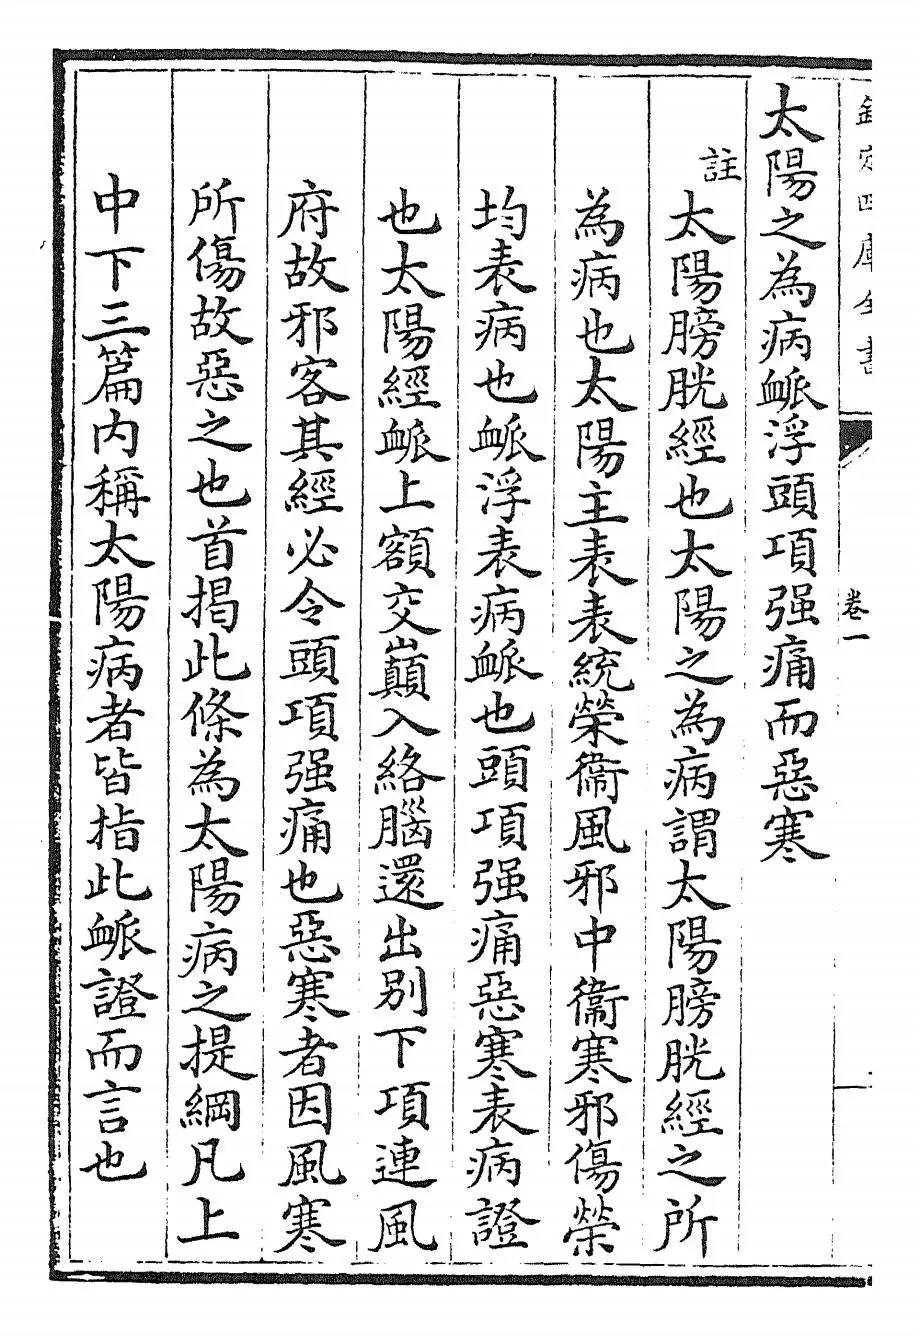 欽定四庫全書
卷一
太陽之為病脈浮頭項强痛而惡寒
註
太陽膀胱經也太陽之為病謂太陽膀胱經之所
為病也太陽主表表統榮衞風邪中衞寒邪傷榮
均表病也脈浮表病脈也頭項强痛惡寒表病證
也太陽經脈上額交巔入絡腦還出别下項連風
府故邪客其經必令頭項强痛也惡寒者因風寒
所傷故惡之也首揭此條為太陽病之提綱凡上
中下三篇内稱太陽病者皆指此脈證而言也